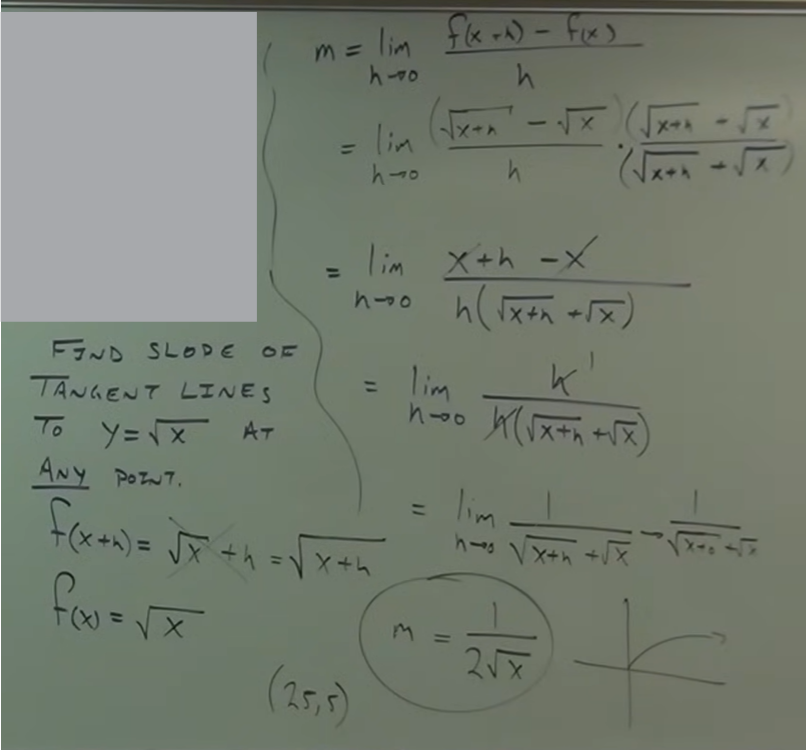 FIND SLOPE OF
TANGENT LINES
TO y = √x AT
ANY POINT.
f(x+h) = √x + h = √(x+h)
f(x) = √x
(25,5)
m = lim h→0 (f(x+h) - f(x)) / h
= lim h→0 (√(x+h) - √x) / h · (√(x+h) + √x) / (√(x+h) + √x)
= lim h→0 (x+h - x) / (h(√(x+h) + √x))
= lim h→0 h 1 / (h(√(x+h) + √x))
= lim h→0 1 / (√(x+h) + √x) → 1 / (√(x+0) + √x)
m = 1 / (2√x)